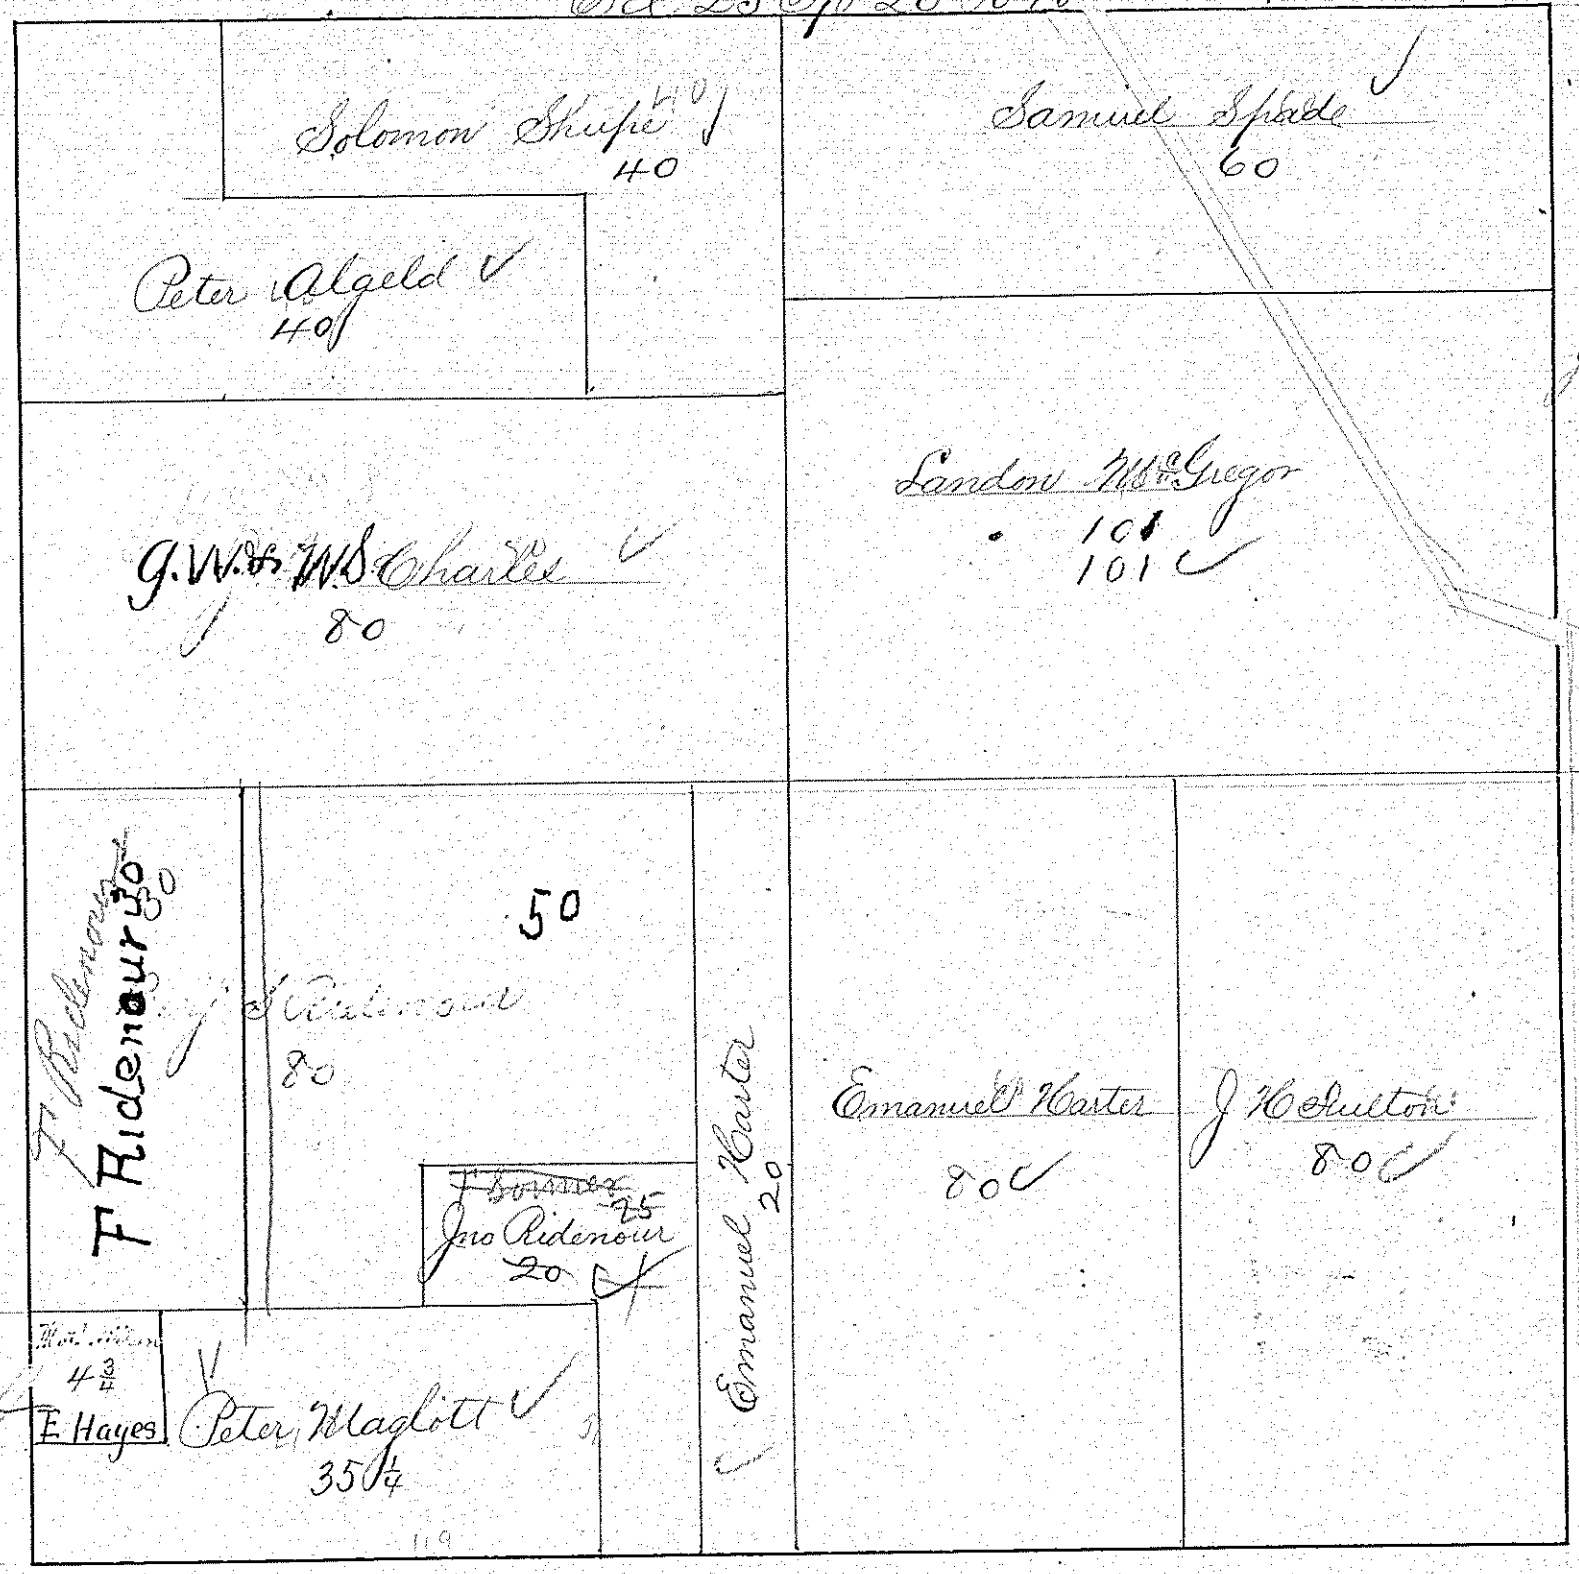 Solomon Shupe
40
40
Samuel Spade
60
Peter Algeld
40
Landon McGregor
101
101
G.W. & W.S. Charles
80
F Ridenour
30
F Ridenour 30
50
80
F Bonner
25
Jno Ridenour
20
Emanuel Harter
20
Emanuel Harter
80
J H Shulton
80
4 3/4
E Hayes
Peter Maglott
35 1/4
119